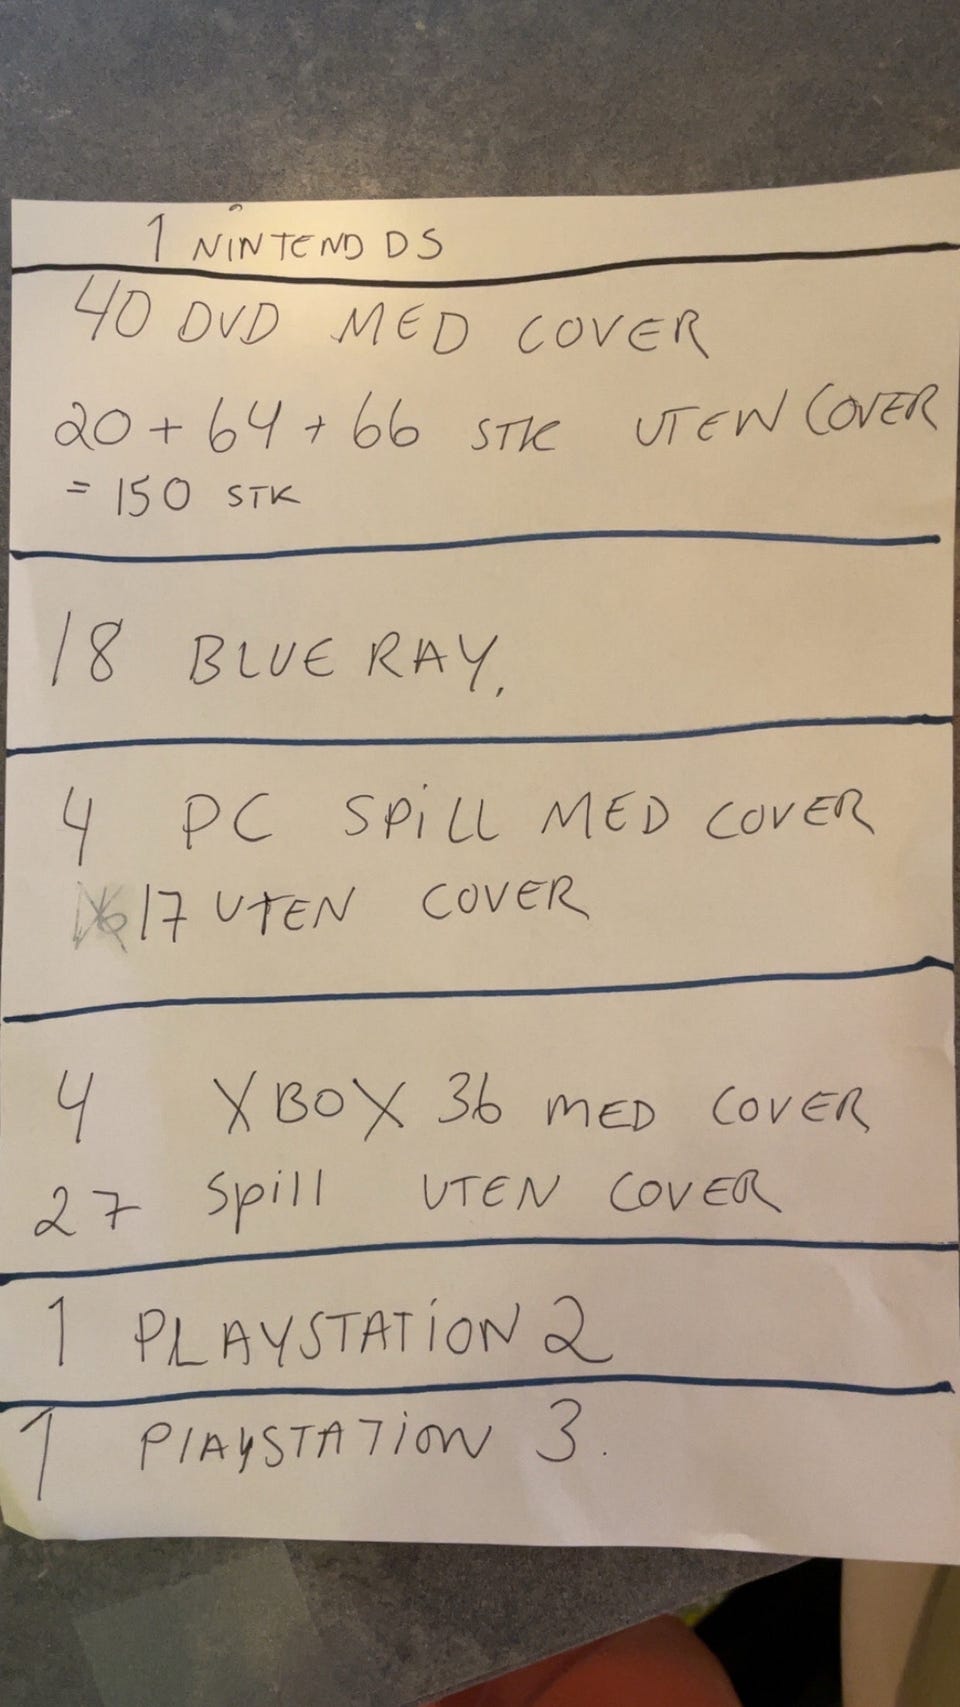 1 NINTEND DS
40 DVD MED COVER
20 + 64 + 66 STK UTEN COVER
= 150 STK
18 BLUE RAY.
4 PC SPILL MED COVER
17 UTEN COVER
4 XBOX 36 MED COVER
27 Spill UTEN COVER
1 PLAYSTATION 2
1 PlAYSTATION 3.